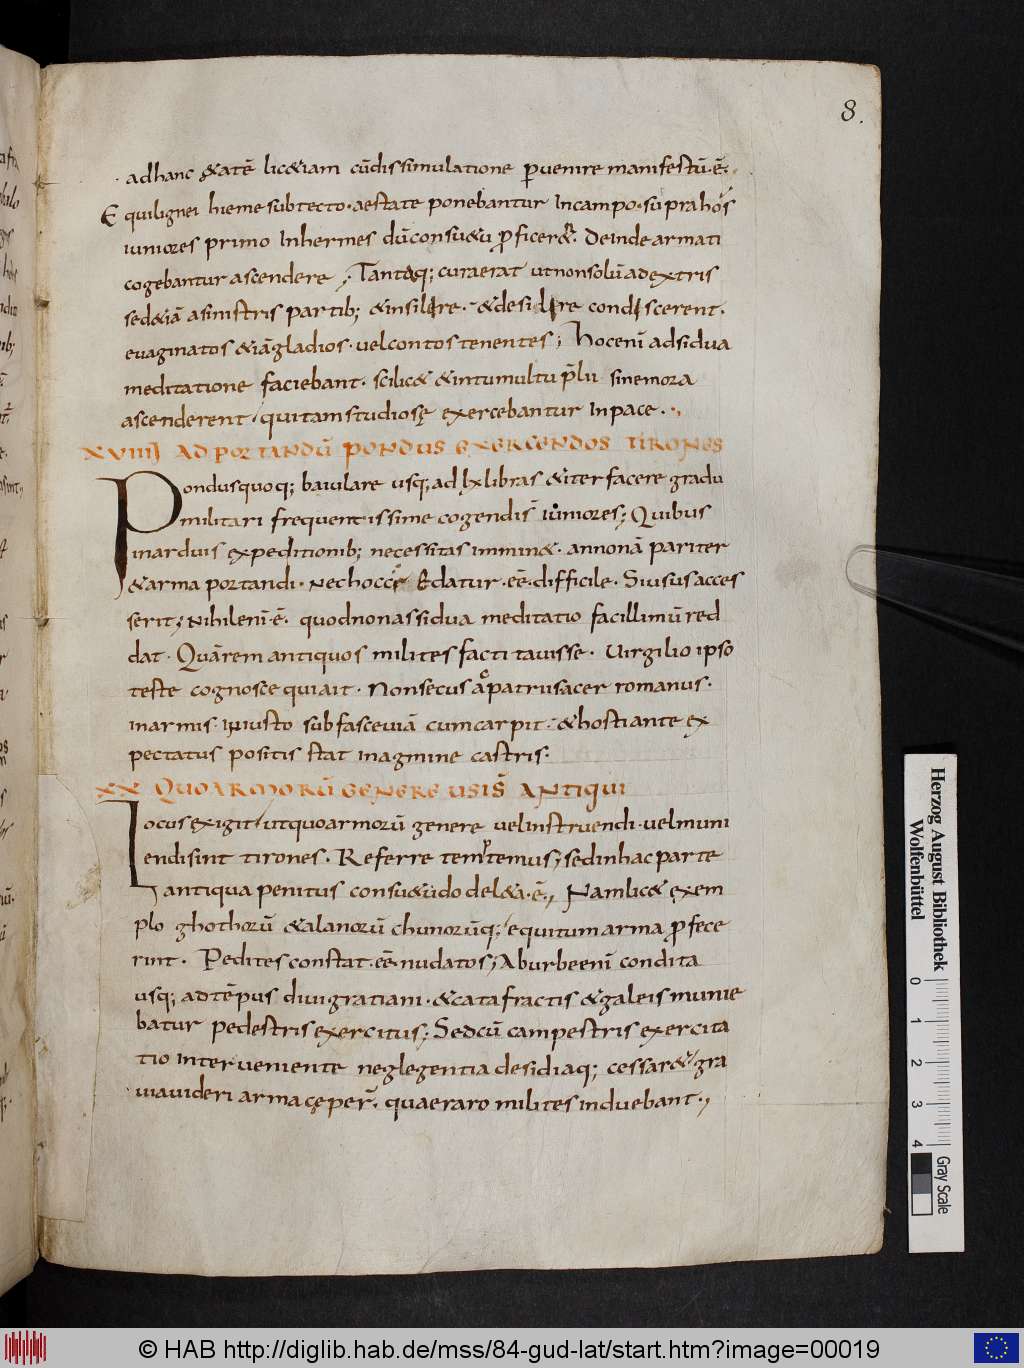 8.
ad hanc &atē lic&iam cūdissimulatione ꝑuenire manifestū·ē·
Equilignei hieme subtecto· aestate ponebantur Incampo· suprahos
iuniores primo Inhermes dūconsu&u ꝓficer&· deinde armati
cogebantur ascendere; Tantaq; curaerat utnonsolū adextris
sed&iā asinistris partib; &insilire·&desilire condiscerent·
euaginatos &iā gladios· uelcontos tenentes; hocenī adsidua
meditatione faciebant· scilic& &intumultu p̄lii sinemora
ascenderent quitam studiosę exercebantur Inpace·
XVIIII AD PORTANDŪ PONDUS EXERCENDOS TIRONES
Pondusquoq; baiulare usq; ad lx libras &iter facere gradu
militari frequentissime cogendis̄ iuniores; Quibus
inarduis expeditionib; necessitas immin&· annonā pariter
&arma portandi· Nechoc credatur·eē·difficile· Siususacces
serit; Nihilenī·ē· quodnonassidua meditatio facillimū red
dat· Quārem antiquos milites factitauisse· Uirgilio ipso
teste cognosce quiait· Nonsecus ac patriis acer romanus·
inarmis· iniusto subfasceuiā cumcarpit·&hosti ante ex
pectatus positis stat inagmine castris·
XX QUO ARMORŪ GENERE USIS̄ ANTIQUI
Locus exigit utquoarmorū genere uel instruendi· uelmuni
endisint tirones· Referre temptemus; sedinhac parte
antiqua penitus consu&udo del&a·ē·, Namlic& exem
plo ghothorū &alanorū chunorūq; equitum arma ꝓfece
rint· Pedites constat·eē nudatos; Aburbe enī condita
usq; ad tēpus diui gratiani·&catafractis &galeis munie
batur pedestris exercitus; Sedcū campestris exercita
tio interueniente neglegentia desidiaq; cessar& gra
uiauideri arma cęper̄· quaeraro milites induebant·,
Herzog August Bibliothek
Wolfenbüttel
0 1 2 3 4
Gray Scale
© HAB http://diglib.hab.de/mss/84-gud-lat/start.htm?image=00019